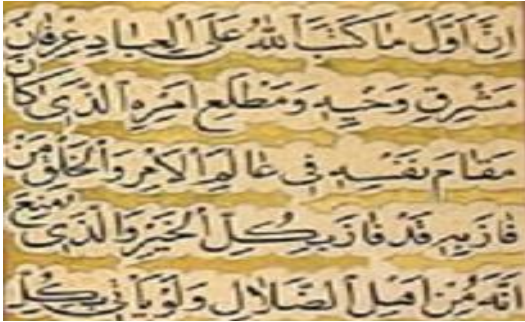 اِنَّ اَوَّلَ مَا كَتَبَ اللهُ عَلَى الْعِبَادِ عِرْفَانُ
مَشْرِقِ وَحْيِهِ وَمَطْلَعِ اَمْرِهِ الَّذِى كَانَ
مَقَامَ نَفْسِهِ فِى عَالَمِ الْاَمْرِ وَالْخَلْقِ مَنْ
فَازَ بِهِ قَدْ فَازَ بِكُلِّ الْخَيْرِ وَالَّذِى مُنِعَ
اِنَّهُ مِنْ اَهْلِ الضَّلَالِ وَلَوْ يَأْتِى بِكُلِّ